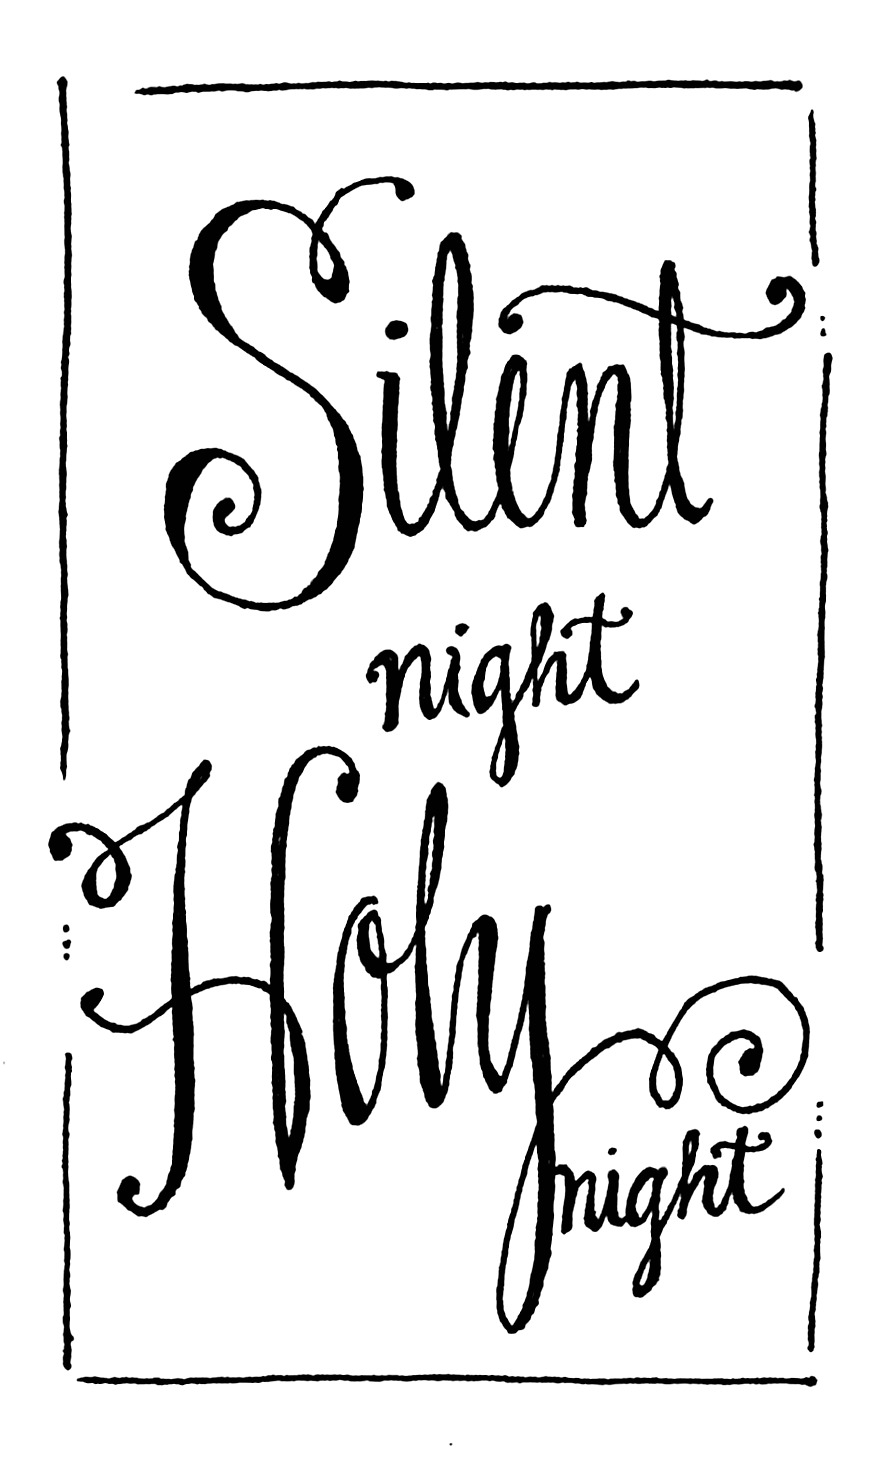 Silent
night
Holy
night